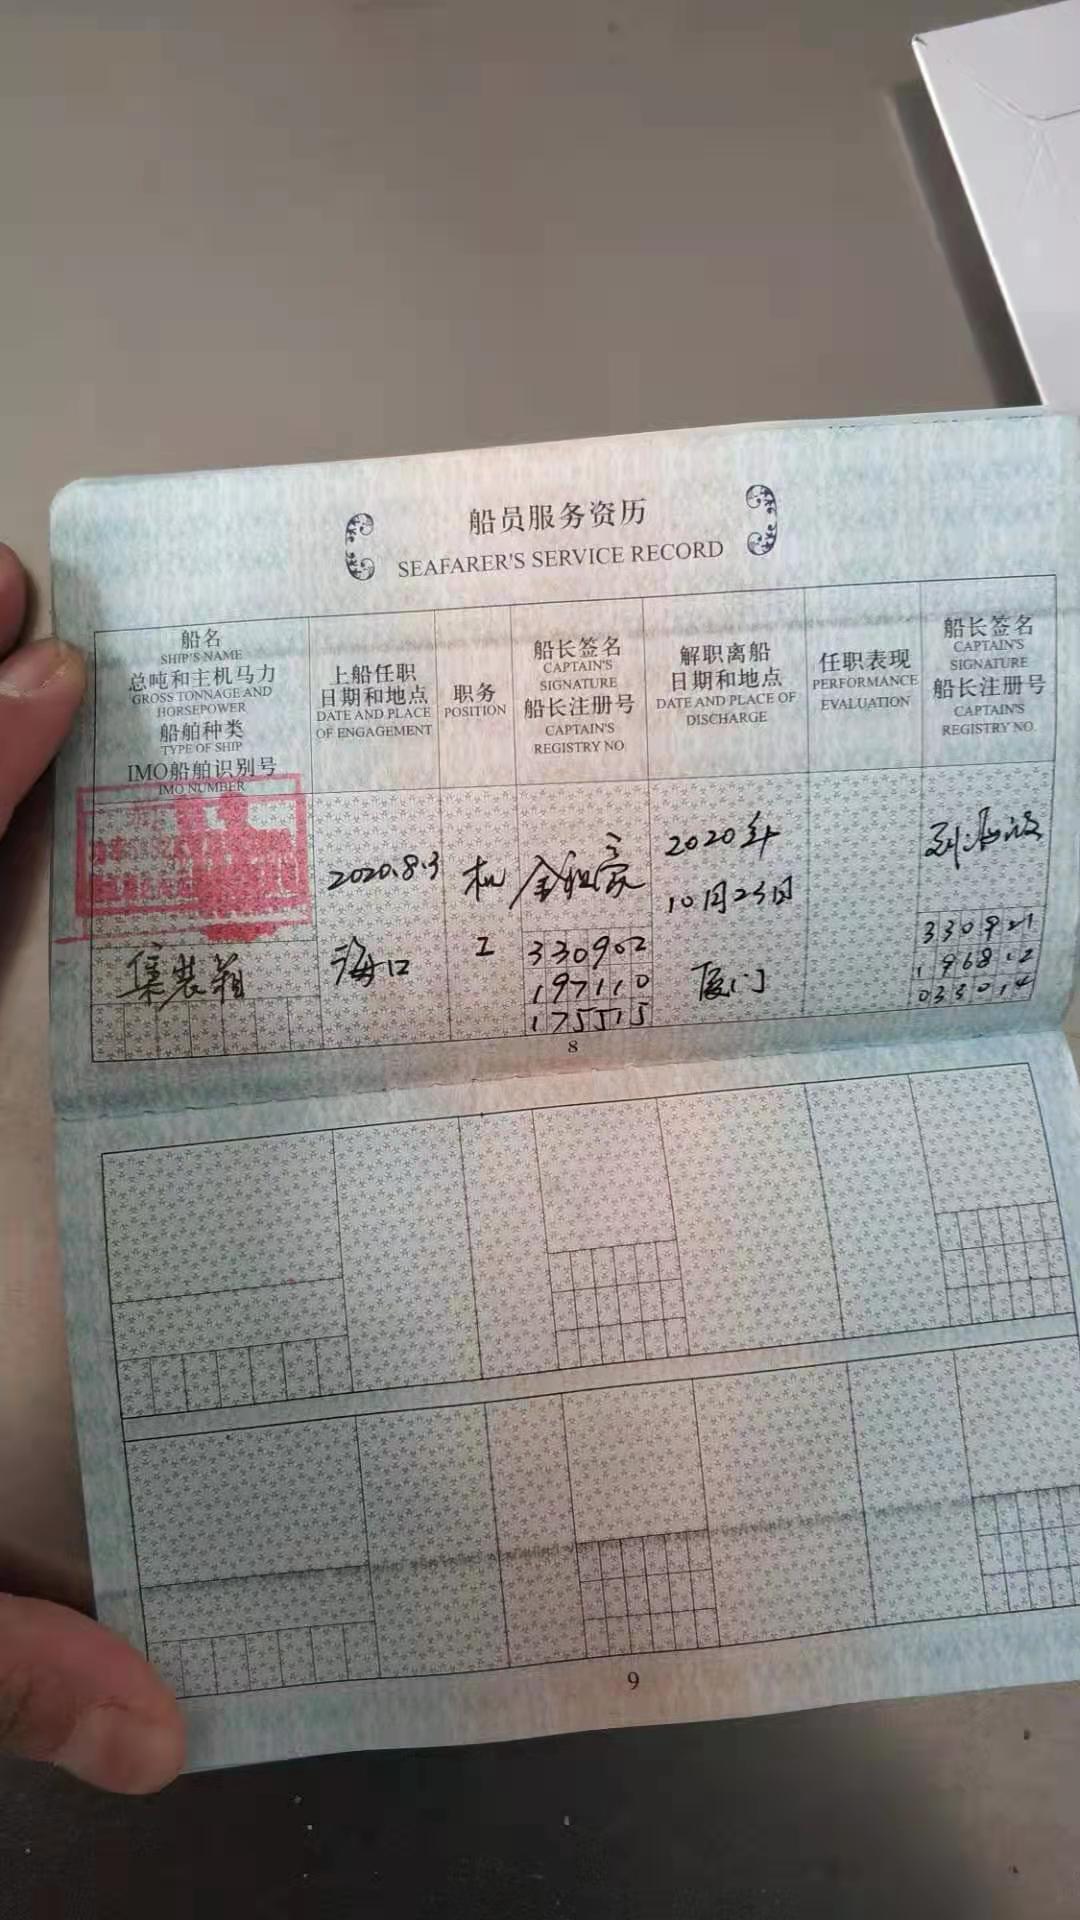 船员服务资历
SEAFARER'S SERVICE RECORD
船名
SHIP'S NAME
总吨和主机马力
GROSS TONNAGE AND
HORSEPOWER
船舶种类
TYPE OF SHIP
IMO船舶识别号
IMO NUMBER
上船任职
日期和地点
DATE AND PLACE
OF ENGAGEMENT
职务
POSITION
船长签名
CAPTAIN'S
SIGNATURE
船长注册号
CAPTAIN'S
REGISTRY NO.
解职离船
日期和地点
DATE AND PLACE OF
DISCHARGE
任职表现
PERFORMANCE
EVALUATION
船长签名
CAPTAIN'S
SIGNATURE
船长注册号
CAPTAIN'S
REGISTRY NO.
集装箱
2020.8.3
海口
机
工
330902
197110
175515
2020年
10月23日
厦门
330921
196812
033014
8
9